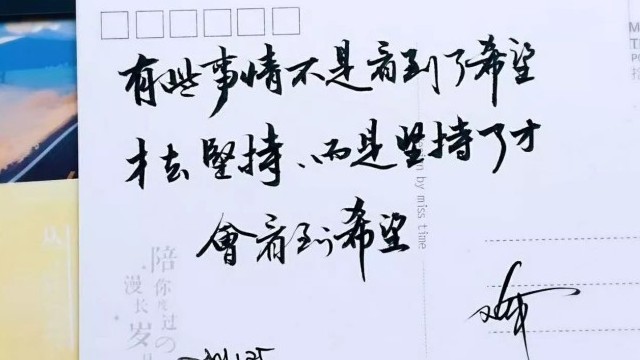 有些事情不是看到了希望
才去堅持、而是坚持了才
會看到希望
by miss time
陪你度过の
漫长岁
从